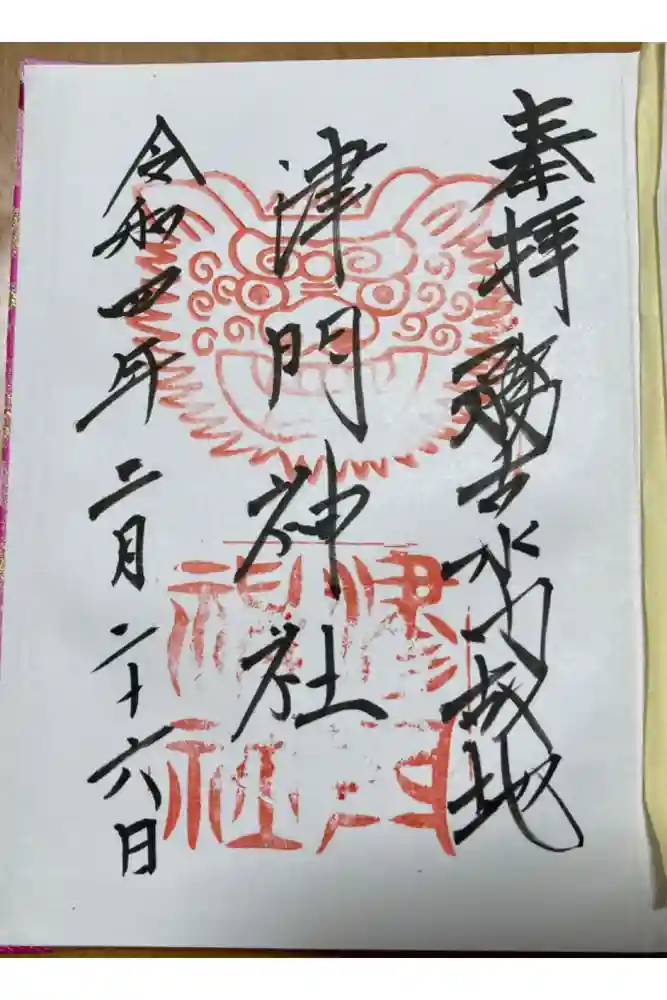 奉拝 務古水門城地
津門神社
令和四年二月二十六日
津門
神社